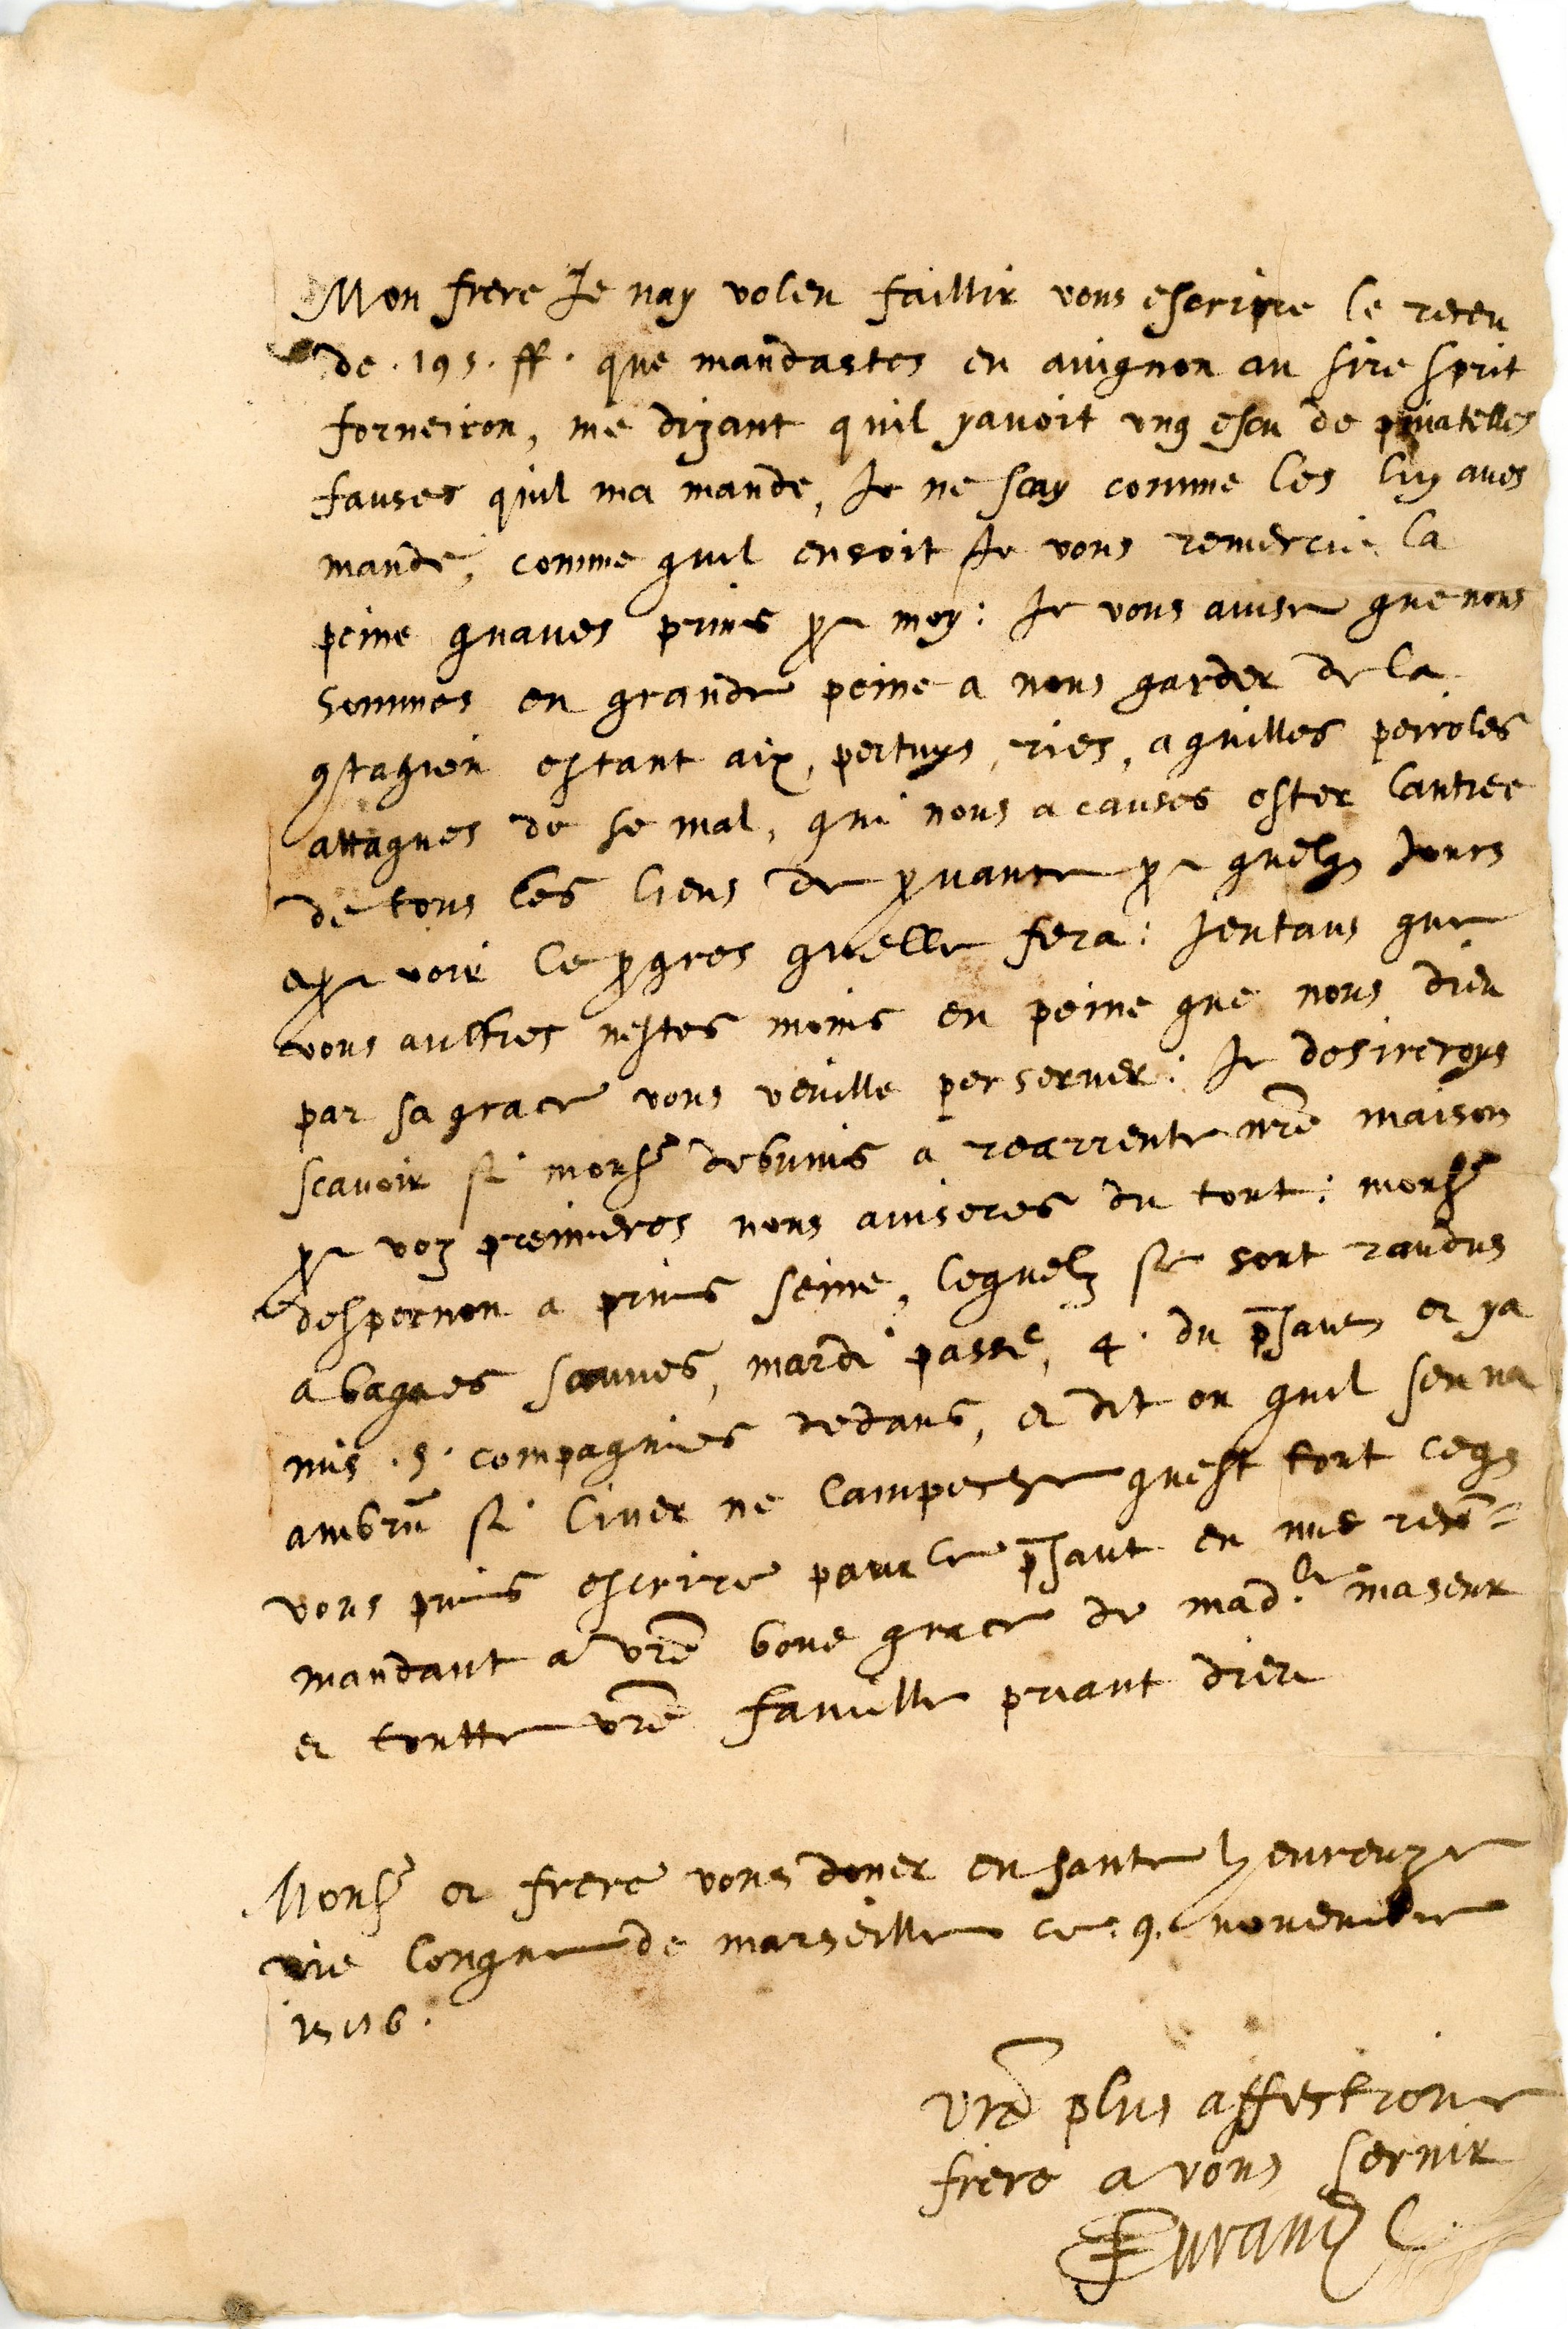 Mon frere Je nay voleu faillir vous escripre le receu
de .195. ff. que mandastes en avignon au sire sprit
forneiron, me dizant quil yavoit ung escu de pinatelles
fauses quil ma mande, Je ne scay comme les luy aves
mande, comme quil ensoit Je vous remercie la
peine quaves prins pr moy: Je vous avise que nous
sommes en grande peine a nous garder de la
contagien estant aix, pertuys, ries, aguilles peiroles
attaques de se mal, qui nous a causes oster lantree
de tous les liens de provance pr quelqs Jours
e pr voir le progres quelle fera: Jentans que
vous aultres nestes moins en peine que nous dieu
par sa grace vous veuille perserver: Je desireroys
scavoir si monsr debuins a rearrente nre maison
pr voz premieres nous aviseres du tout: monsr
despernon a prins seine, lequelz se sont randus
a bagues sauves, mardi passe, 4. du psant et ya
mis .5. compagnies dedans, et dit on quil senva
ambrun si liver ne lampeche quest tout ceqs
vous puis escrire pour le psant en me recō=
mandant a vre bone grace de madle maseur
et toutte vre famille priant dieu
Monsr et frere vous doner en sante heureuze
vie longue de marseille ce .9. novembre
1586.
vre plus affectione
frere a vous servir
Durand